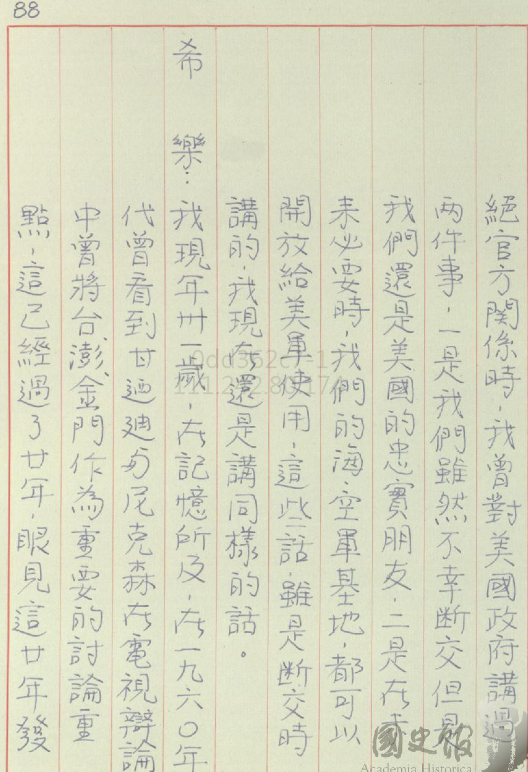 88
絕官方關係時，我曾對美國政府講過
兩件事，一是我們雖然不幸斷交但是
我們還是美國的忠實朋友，二是在未
來必要時，我們的海、空軍基地，都可以
開放給美軍使用，這些話，雖是斷交時
講的，我現在還是講同樣的話。
希 樂：我現年卅一歲，在記憶所及，在一九六〇年
代曾看到甘迺廸與尼克森在電視辯論
中曾將台澎、金門作為重要的討論重
點，這已經過了廿年，眼見這廿年發
國史館
Academia Historica